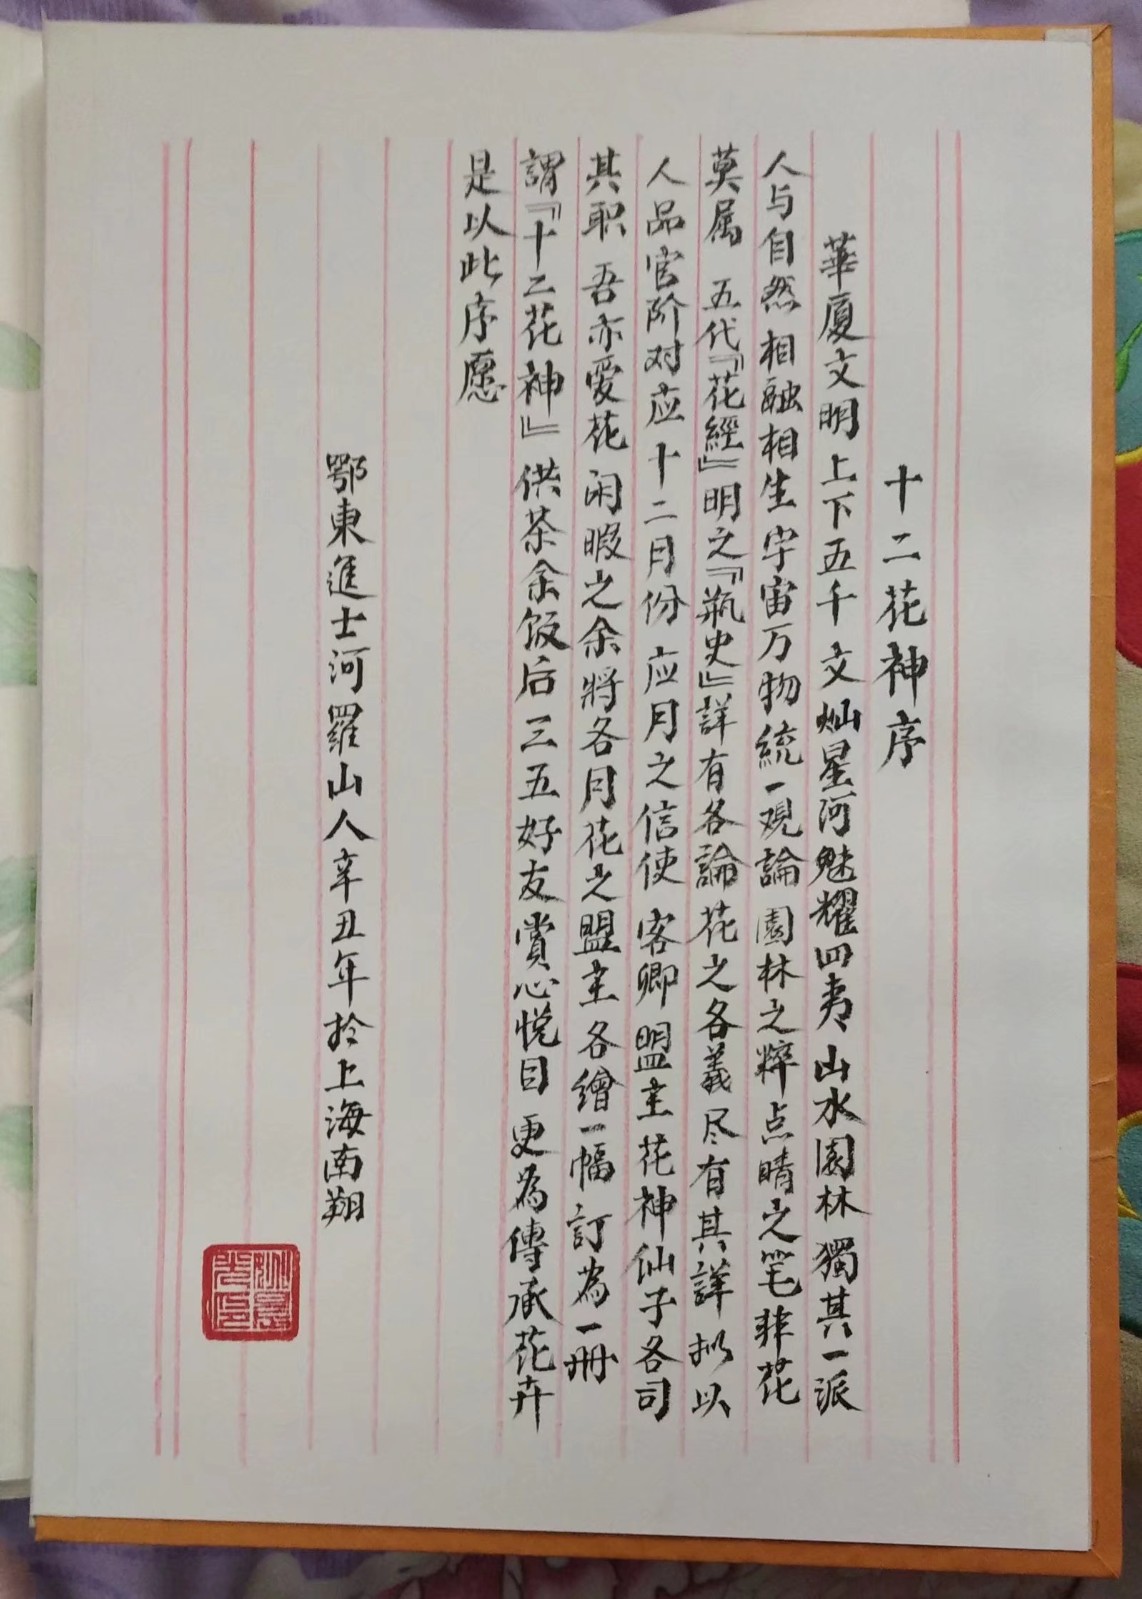 十二花神序
華廈文明上下五千 文灿星河魅耀四夷 山水園林 獨其一派
人与自然 相融相生 宇宙万物統一观論 園林之粹点睛之笔非花
莫属 五代『花經』明之『瓶史』詳有各論 花之各義 尽有其詳 拟以
人品官阶对应十二月份 应月之信使 客卿 盟主 花神仙子各司
其职 吾亦爱花 闲暇之余將各月花之盟主 各繪一幅 訂為一册
謂『十二花神』供茶余饭后 三五好友 賞心悦目 更為傳承花卉
是以此序愿
鄂東進士河羅山人辛丑年於上海南翔